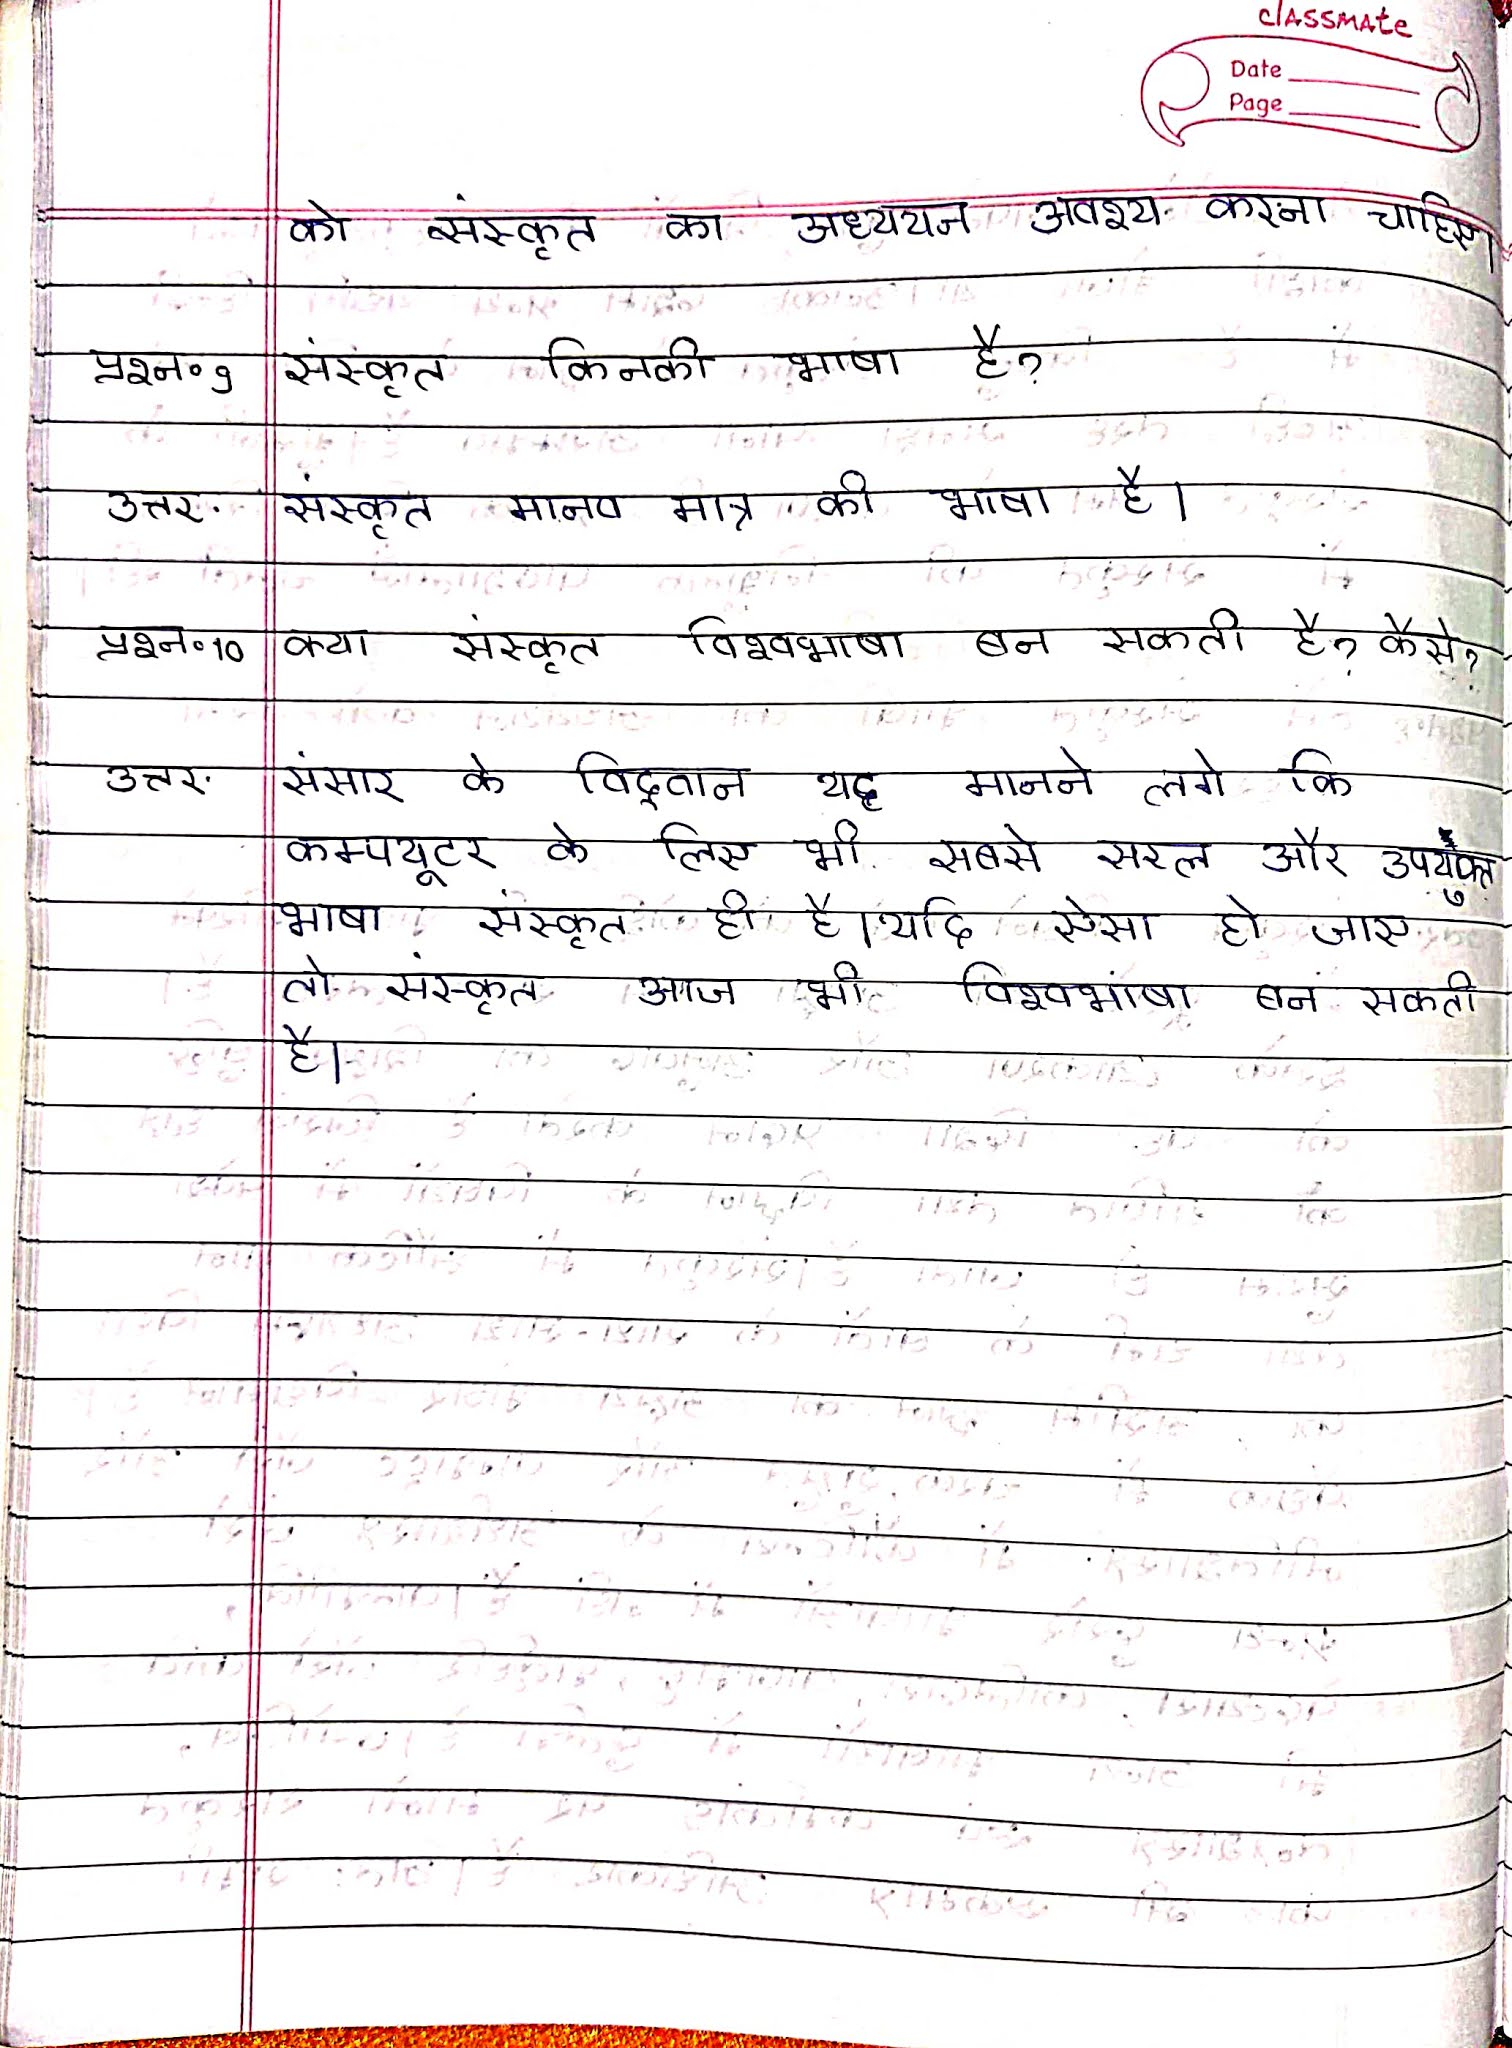 classmate
Date
Page
को संस्कृत का अध्ययन अवश्य करना चाहिए।
प्रश्न॰9 संस्कृत किनकी भाषा है?
उत्तर. संस्कृत मानव मात्र की भाषा है।
प्रश्न॰10 क्या संस्कृत विश्वभाषा बन सकती है? कैसे?
उत्तर. संसार के विद्वान यह मानने लगे कि
कम्पयूटर के लिए भी सबसे सरल और उपयुक्त
भाषा संस्कृत ही है।यदि ऐसा हो जाए
तो संस्कृत आज भी विश्वभाषा बन सकती
है।